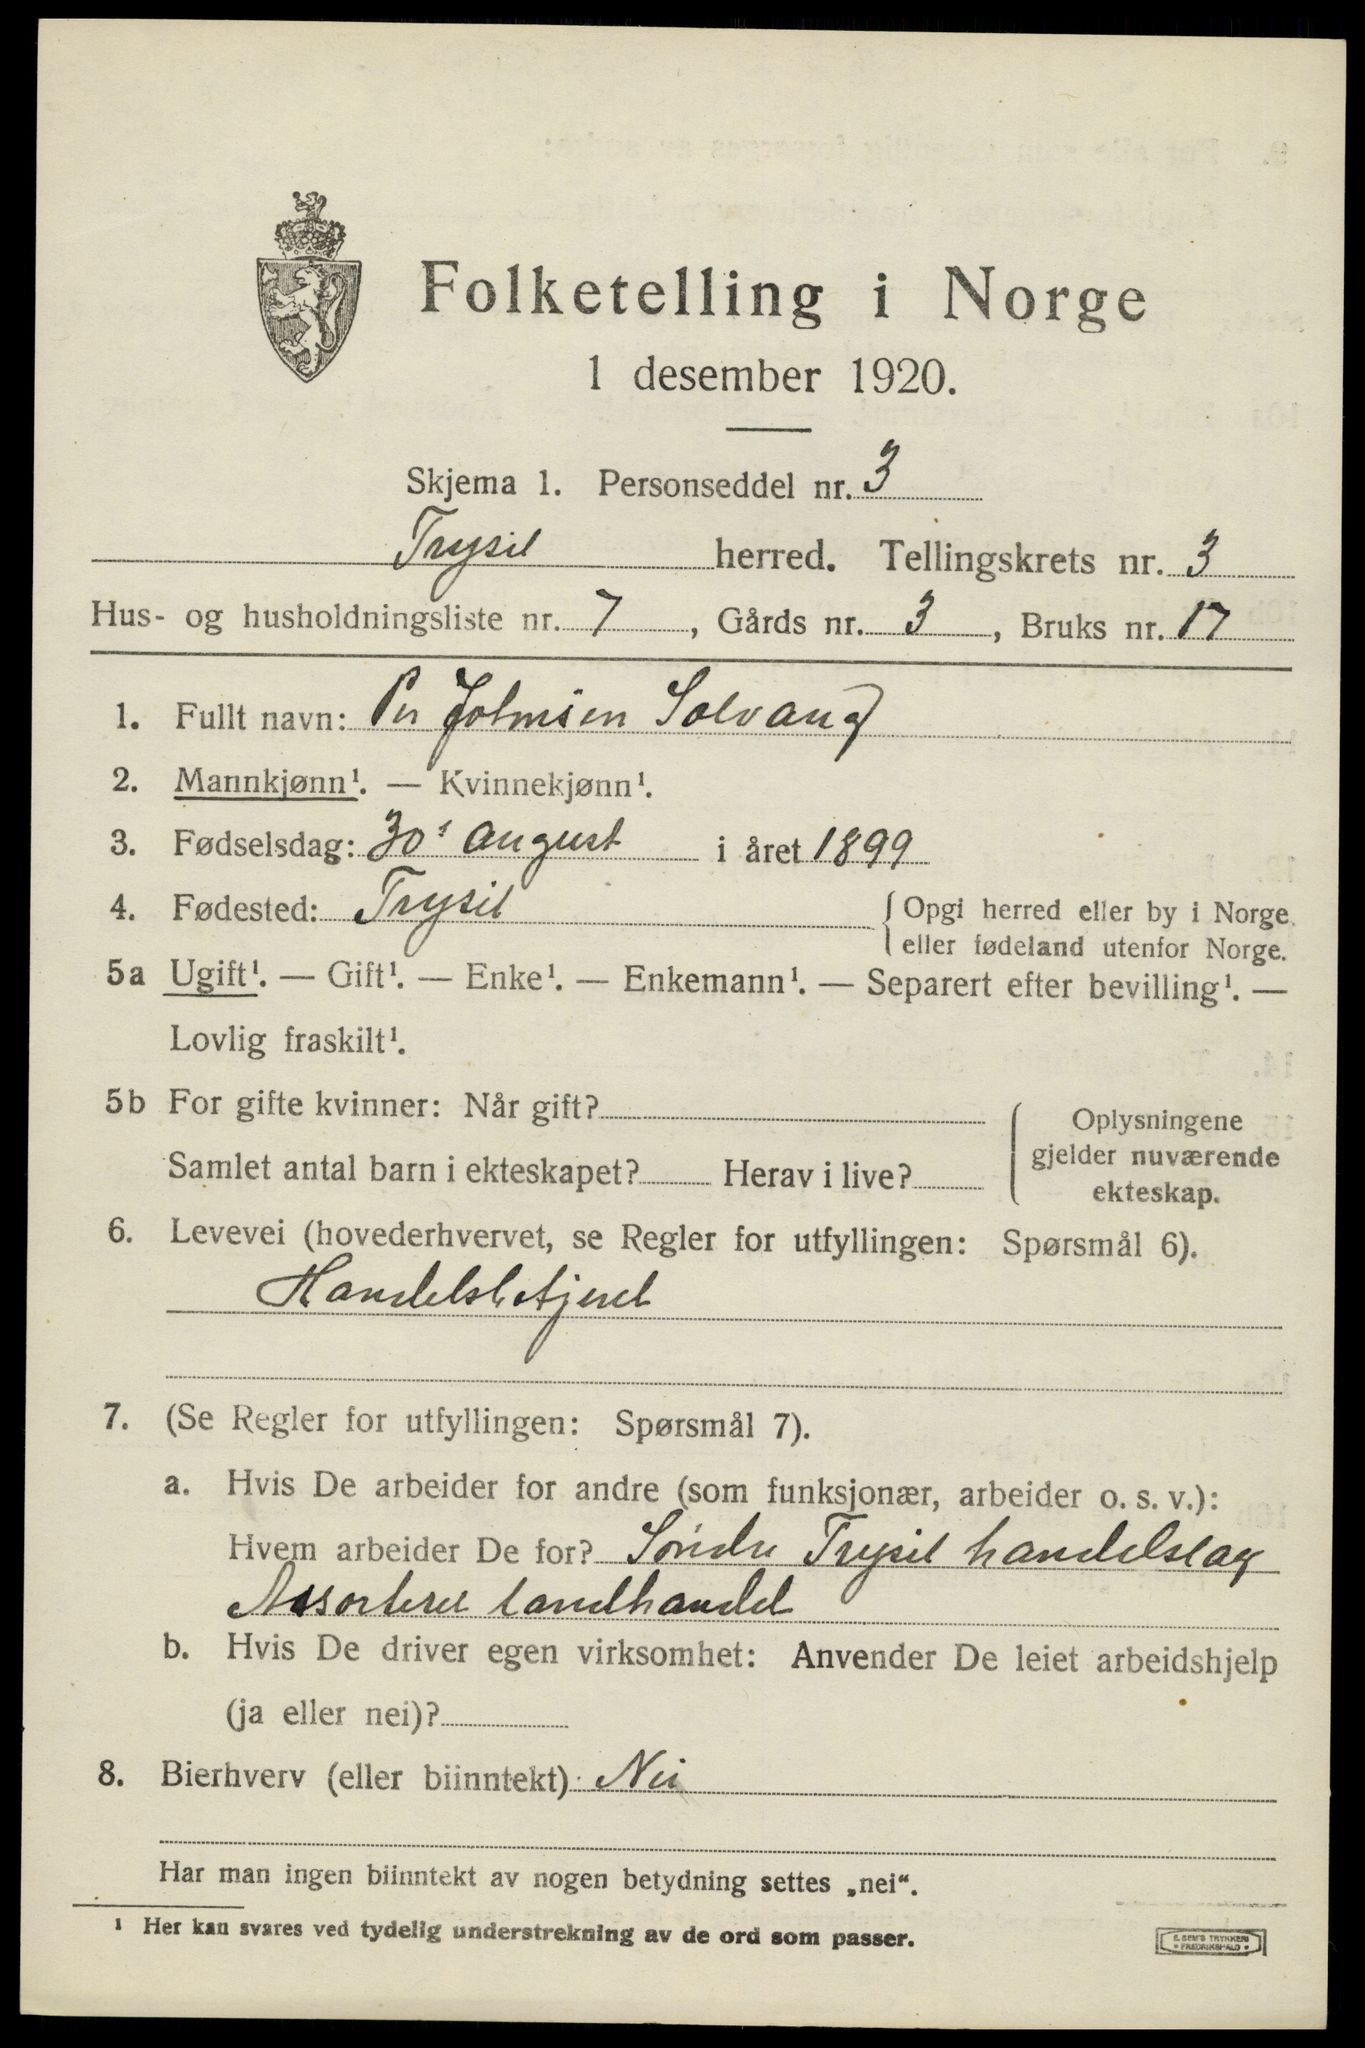 Folketelling i Norge
1 desember 1920.
Skjema 1. Personseddel nr. 3
Trysil herred. Tellingskrets nr. 3
Hus- og husholdningsliste nr. 7, Gårds nr. 3, Bruks nr. 17
1. Fullt navn: Per Johnsen Solvang
2. Mannkjønn¹. — Kvinnekjønn¹.
3. Fødselsdag: 30' august i året 1899
4. Fødested: Trysil { Opgi herred eller by i Norge
eller fødeland utenfor Norge.
5a Ugift¹. — Gift¹. — Enke¹. — Enkemann¹. — Separert efter bevilling¹. —
Lovlig fraskilt¹.
5b For gifte kvinner: Når gift?
Samlet antal barn i ekteskapet? Herav i live?
Oplysningene
gjelder nuværende
ekteskap.
6. Levevei (hovederhvervet, se Regler for utfyllingen: Spørsmål 6).
Handelsbetjent
7. (Se Regler for utfyllingen: Spørsmål 7).
a. Hvis De arbeider for andre (som funksjonær, arbeider o. s. v.):
Hvem arbeider De for? Søndre Trysil handelslag
Assorteret landhandel
b. Hvis De driver egen virksomhet: Anvender De leiet arbeidshjelp
(ja eller nei)?
8. Bierhverv (eller biinntekt): Nei
Har man ingen biinntekt av nogen betydning settes „nei“.
¹ Her kan svares ved tydelig understrekning av de ord som passer.
E. SEM'S TRYKKERI
FREDRIKSHALD